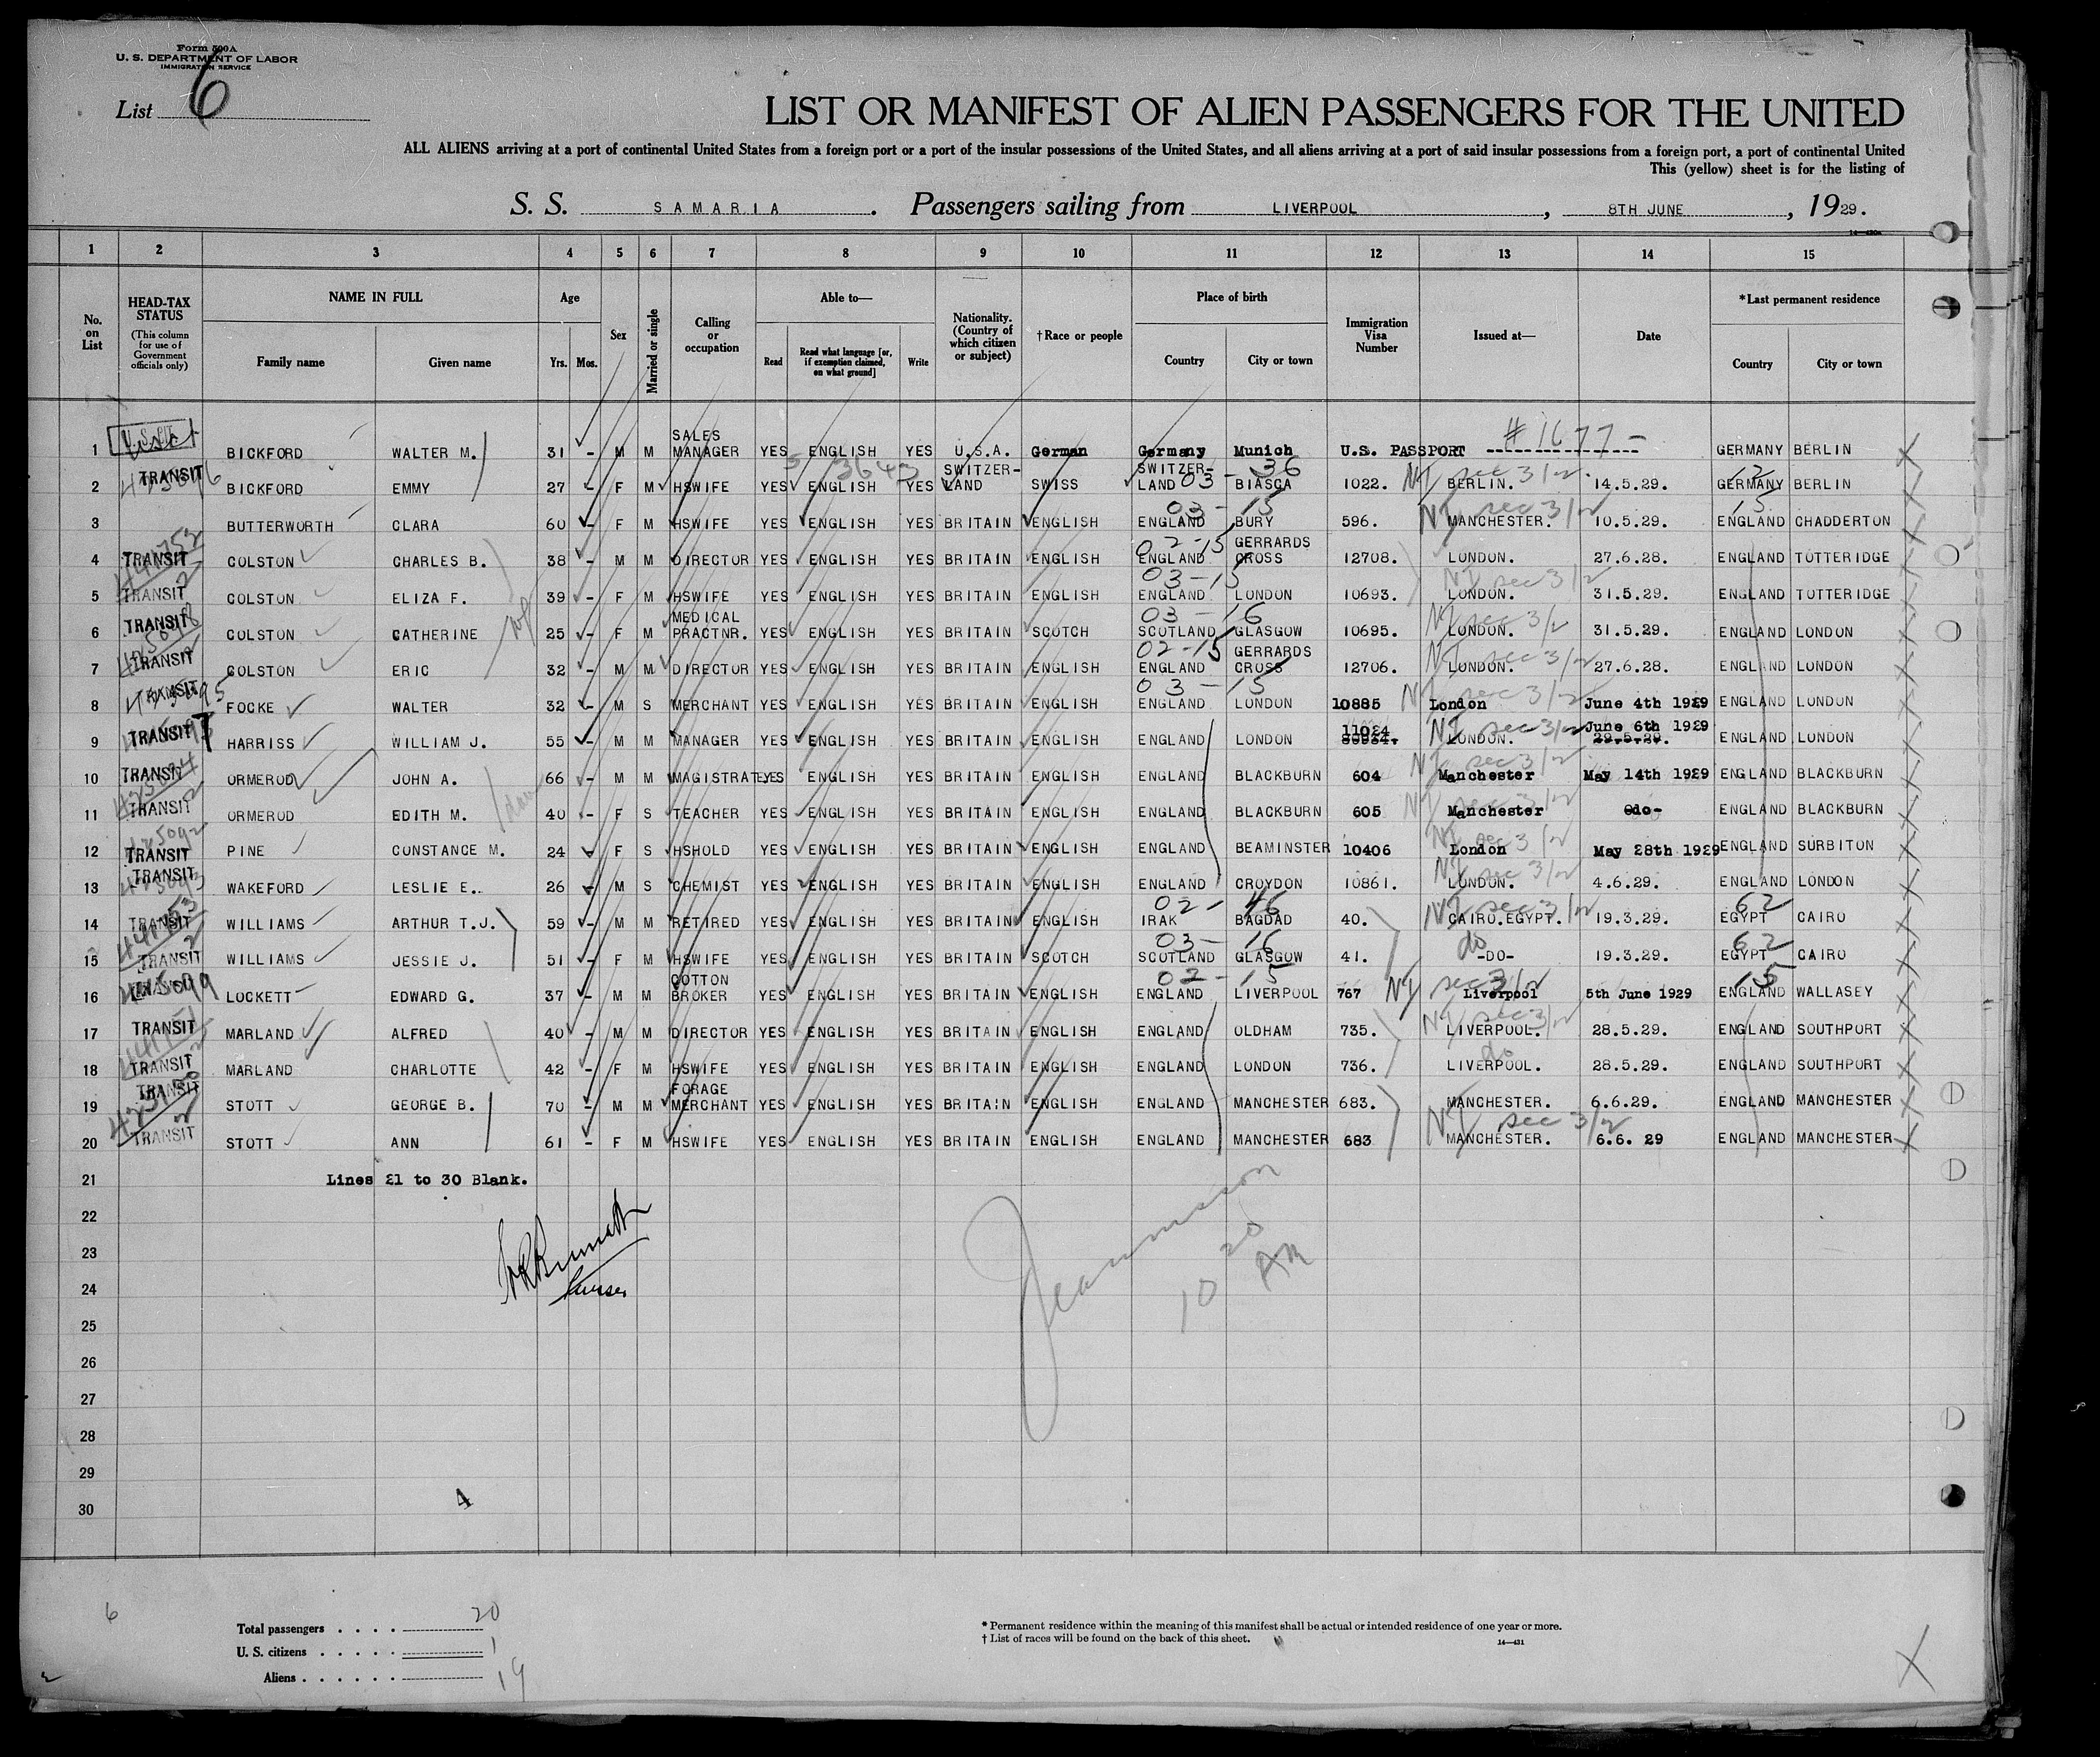 Form 500A
U. S. DEPARTMENT OF LABOR
IMMIGRATION SERVICE
List 6
LIST OR MANIFEST OF ALIEN PASSENGERS FOR THE UNITED
ALL ALIENS arriving at a port of continental United States from a foreign port or a port of the insular possessions of the United States, and all aliens arriving at a port of said insular possessions from a foreign port, a port of continental United
This (yellow) sheet is for the listing of
S. S. SAMARIA. Passengers sailing from LIVERPOOL, 8TH JUNE, 1929.
14—430a
1 2 3 4 5 6 7 8 9 10 11 12 13 14 15
No. on List
HEAD-TAX STATUS (This column for use of Government officials only)
NAME IN FULL Family name Given name
Age Yrs. Mos.
Sex
Married or single
Calling or occupation
Able to— Read Read what language [or, if exemption claimed, on what ground] Write
Nationality. (Country of which citizen or subject)
†Race or people
Place of birth Country City or town
Immigration Visa Number
Issued at—
Date
*Last permanent residence Country City or town
1 BICKFORD WALTER M. 31 - M M SALES MANAGER YES ENGLISH YES U.S.A. German Germany Munich U.S. PASSPORT #1677- GERMANY BERLIN
2 TRANSIT BICKFORD EMMY 27 - F M HSWIFE YES ENGLISH YES SWITZER-LAND SWISS SWITZER-LAND 03-36 BIASCA 1022. NI sec 3/2 BERLIN. 14.5.29. 12 GERMANY BERLIN
3 BUTTERWORTH CLARA 60 - F M HSWIFE YES ENGLISH YES BRITAIN ENGLISH 03-15 ENGLAND BURY 596. NI sec 3/2 MANCHESTER. 10.5.29. 15 ENGLAND CHADDERTON
4 TRANSIT COLSTON CHARLES B. 38 - M M DIRECTOR YES ENGLISH YES BRITAIN ENGLISH 02-15 ENGLAND GERRARDS CROSS 12708. LONDON. 27.6.28. ENGLAND TOTTERIDGE
5 TRANSIT COLSTON ELIZA F. 39 - F M HSWIFE YES ENGLISH YES BRITAIN ENGLISH 03-15 ENGLAND LONDON 10693. NI sec 3/2 LONDON. 31.5.29. ENGLAND TOTTERIDGE
6 TRANSIT COLSTON CATHERINE 25 - F M MEDICAL PRACTNR. YES ENGLISH YES BRITAIN SCOTCH 03-16 SCOTLAND GLASGOW 10695. NI sec 3/2 LONDON. 31.5.29. ENGLAND LONDON
7 TRANSIT COLSTON ERIC 32 - M M DIRECTOR YES ENGLISH YES BRITAIN ENGLISH 02-15 ENGLAND GERRARDS CROSS 12706. NI sec 3/2 LONDON. 27.6.28. ENGLAND LONDON
8 TRANSIT FOCKE WALTER 32 - M S MERCHANT YES ENGLISH YES BRITAIN ENGLISH 03-15 ENGLAND LONDON 10885 NI sec 3/2 London June 4th 1929 ENGLAND LONDON
9 TRANSIT HARRISS WILLIAM J. 55 - M M MANAGER YES ENGLISH YES BRITAIN ENGLISH ENGLAND LONDON 11024 NI sec 3/2 LONDON. June 6th 1929 29.5.29. ENGLAND LONDON
10 TRANSIT ORMEROD JOHN A. 66 - M M MAGISTRATE YES ENGLISH YES BRITAIN ENGLISH ENGLAND BLACKBURN 604 NI sec 3/2 Manchester May 14th 1929 ENGLAND BLACKBURN
11 TRANSIT ORMEROD EDITH M. 40 - F S TEACHER YES ENGLISH YES BRITAIN ENGLISH ENGLAND BLACKBURN 605 NI sec 3/2 Manchester -do- ENGLAND BLACKBURN
12 TRANSIT PINE CONSTANCE M. 24 - F S HSHOLD YES ENGLISH YES BRITAIN ENGLISH ENGLAND BEAMINSTER 10406 NI sec 3/2 London May 28th 1929 ENGLAND SURBITON
13 TRANSIT WAKEFORD LESLIE E.. 26 - M S CHEMIST YES ENGLISH YES BRITAIN ENGLISH ENGLAND CROYDON 10861. NI sec 3/2 LONDON. 4.6.29. ENGLAND LONDON
14 TRANSIT WILLIAMS ARTHUR T.J. 59 - M M RETIRED YES ENGLISH YES BRITAIN ENGLISH 02-46 IRAK BAGDAD 40. NI sec 3/2 CAIRO.EGYPT. 19.3.29. 62 EGYPT CAIRO
15 TRANSIT WILLIAMS JESSIE J. 51 - F M HSWIFE YES ENGLISH YES BRITAIN SCOTCH 03-16 SCOTLAND GLASGOW 41. do -DO- 19.3.29. 62 EGYPT CAIRO
16 TRANSIT LOCKETT EDWARD G. 37 - M M COTTON BROKER YES ENGLISH YES BRITAIN ENGLISH 02-15 ENGLAND LIVERPOOL 767 NI sec 3/2 Liverpool 5th June 1929 15 ENGLAND WALLASEY
17 TRANSIT MARLAND ALFRED 40 - M M DIRECTOR YES ENGLISH YES BRITAIN ENGLISH ENGLAND OLDHAM 735. NI sec 3/2 LIVERPOOL. 28.5.29. ENGLAND SOUTHPORT
18 TRANSIT MARLAND CHARLOTTE 42 - F M HSWIFE YES ENGLISH YES BRITAIN ENGLISH ENGLAND LONDON 736. do LIVERPOOL. 28.5.29. ENGLAND SOUTHPORT
19 TRANSIT STOTT GEORGE B. 70 - M M FORAGE MERCHANT YES ENGLISH YES BRITAIN ENGLISH ENGLAND MANCHESTER 683. MANCHESTER. 6.6.29. ENGLAND MANCHESTER
20 TRANSIT STOTT ANN 61 - F M HSWIFE YES ENGLISH YES BRITAIN ENGLISH ENGLAND MANCHESTER 683 NI sec 3/2 MANCHESTER. 6.6. 29 ENGLAND MANCHESTER
21 Lines 21 to 30 Blank.
22
23
24 Purser
25
26
27
28
29
30
10 20 AM
4
6
Total passengers . . . . 20
U. S. citizens . . . . . 1
Aliens . . . . . . 19
* Permanent residence within the meaning of this manifest shall be actual or intended residence of one year or more.
† List of races will be found on the back of this sheet. 14—431